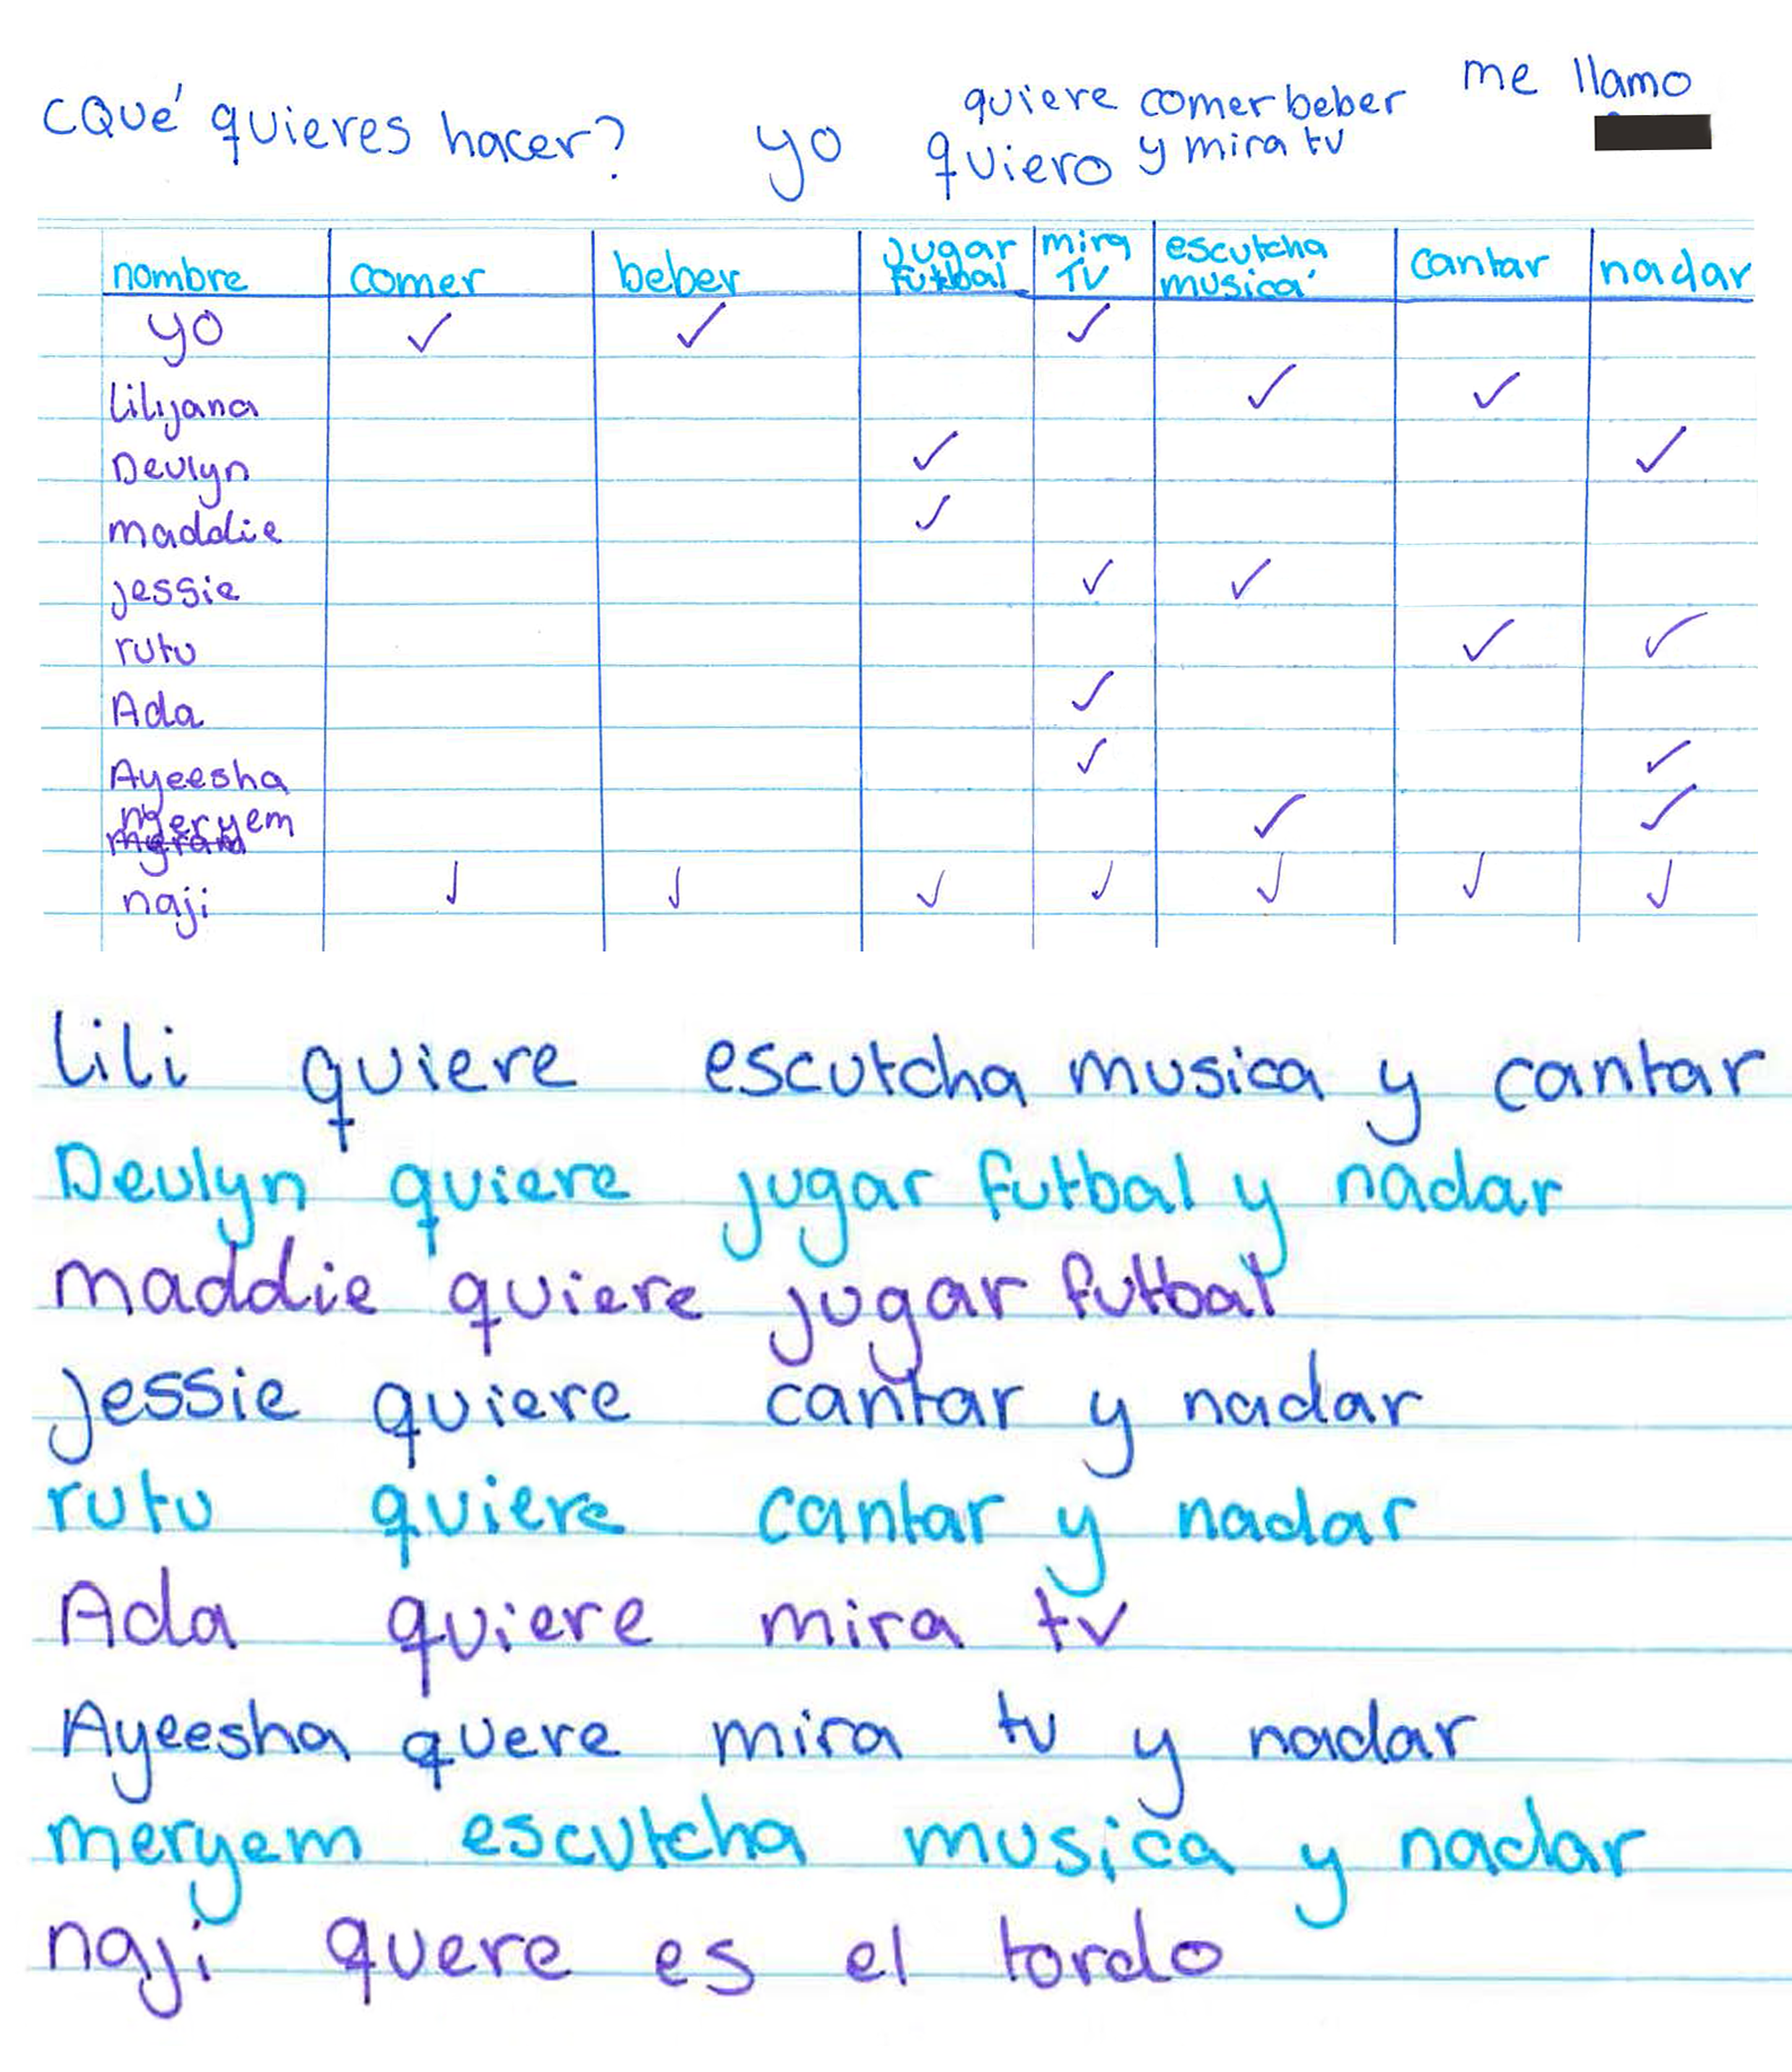 ¿Qué quieres hacer? yo quiero
quiere comer beber
y mira tv
me llamo
nombre comer beber jugar futbal mira TV escutcha musica cantar nadar
yo ✓ ✓ ✓
Lilyana ✓ ✓
Devlyn ✓ ✓
maddie ✓
jessie ✓ ✓
rutu ✓ ✓
Ada ✓
Ayeesha ✓ ✓
meryem ✓ ✓
naji ✓ ✓ ✓ ✓ ✓ ✓ ✓
Lili quiere escutcha musica y cantar
Devlyn quiere jugar futbal y nadar
maddie quiere jugar futbal
jessie quiere cantar y nadar
rutu quiere cantar y nadar
Ada quiere mira tv
Ayeesha quere mira tv y nadar
meryem escutcha musica y nadar
naji quere es el tordo